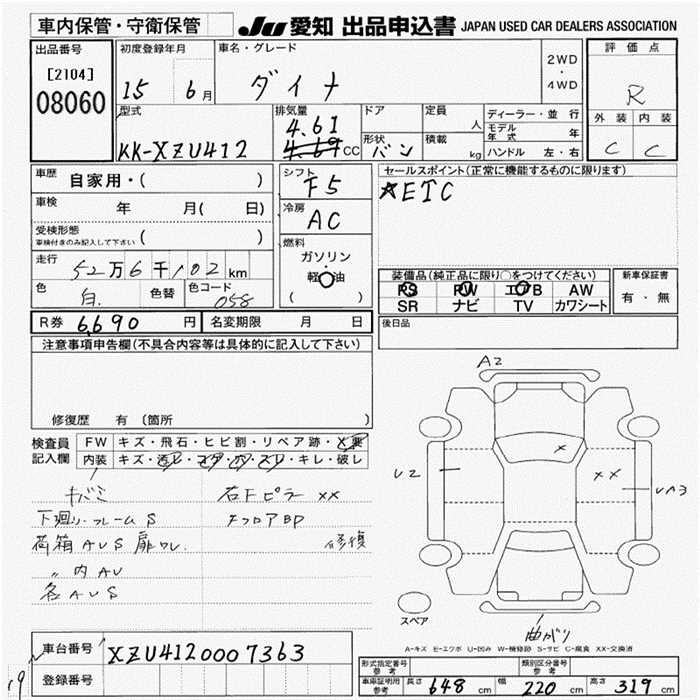 車内保管・守衛保管
JU 愛知 出品申込書 JAPAN USED CAR DEALERS ASSOCIATION
出品番号
[2104]
08060
初度登録年月
15 6月
車名・グレード
ダイナ
2WD
・
4WD
評価点
R
外装 内装
C C
型式
KK-XZU412
排気量
4.61
4.69cc
ドア
形状
バン
定員
人
積載
kg
ディーラー・並行
モデル年式 年
ハンドル 左・右
車歴 自家用・( )
車検 年 月( 日)
受検形態
車検付きのみ記入して下さい ( )
走行 52万6千102km
色 白. 色替 色コード 058
シフト
F5
冷房
AC
燃料
ガソリン
軽油
( )
セールスポイント(正常に機能するものに限ります)
★ETC
装備品(純正品に限り○をつけてください)
PS PW エアB AW
SR ナビ TV カワシート
新車保証書
有・無
後日品
R券 6,690円 名変期限 月 日
注意事項申告欄(不具合内容等は具体的に記入して下さい)
修復歴 有 〔箇所 〕
検査員
記入欄
FW キズ・飛石・ヒビ割・リペア跡・X要
内装 キズ・汚レ・コゲ・穴・スレ・キレ・破レ
キバミ
下廻り.フレームS
荷箱AUS 扉ワレ.
〃内AU
各AUS
右Fピラ XX
FフロアBP
修復
A2
X
U2
XX
UA3
スペア
曲がり
A-キズ E-エクボ U-凹み W-補修跡 S-サビ C-腐食 XX-交換済
車台番号 XZU4120007363
登録番号
19
形式指定番号
参考
類別区分番号
参考
車庫証明用
参考
長さ 648cm 幅 220cm 高さ 319cm